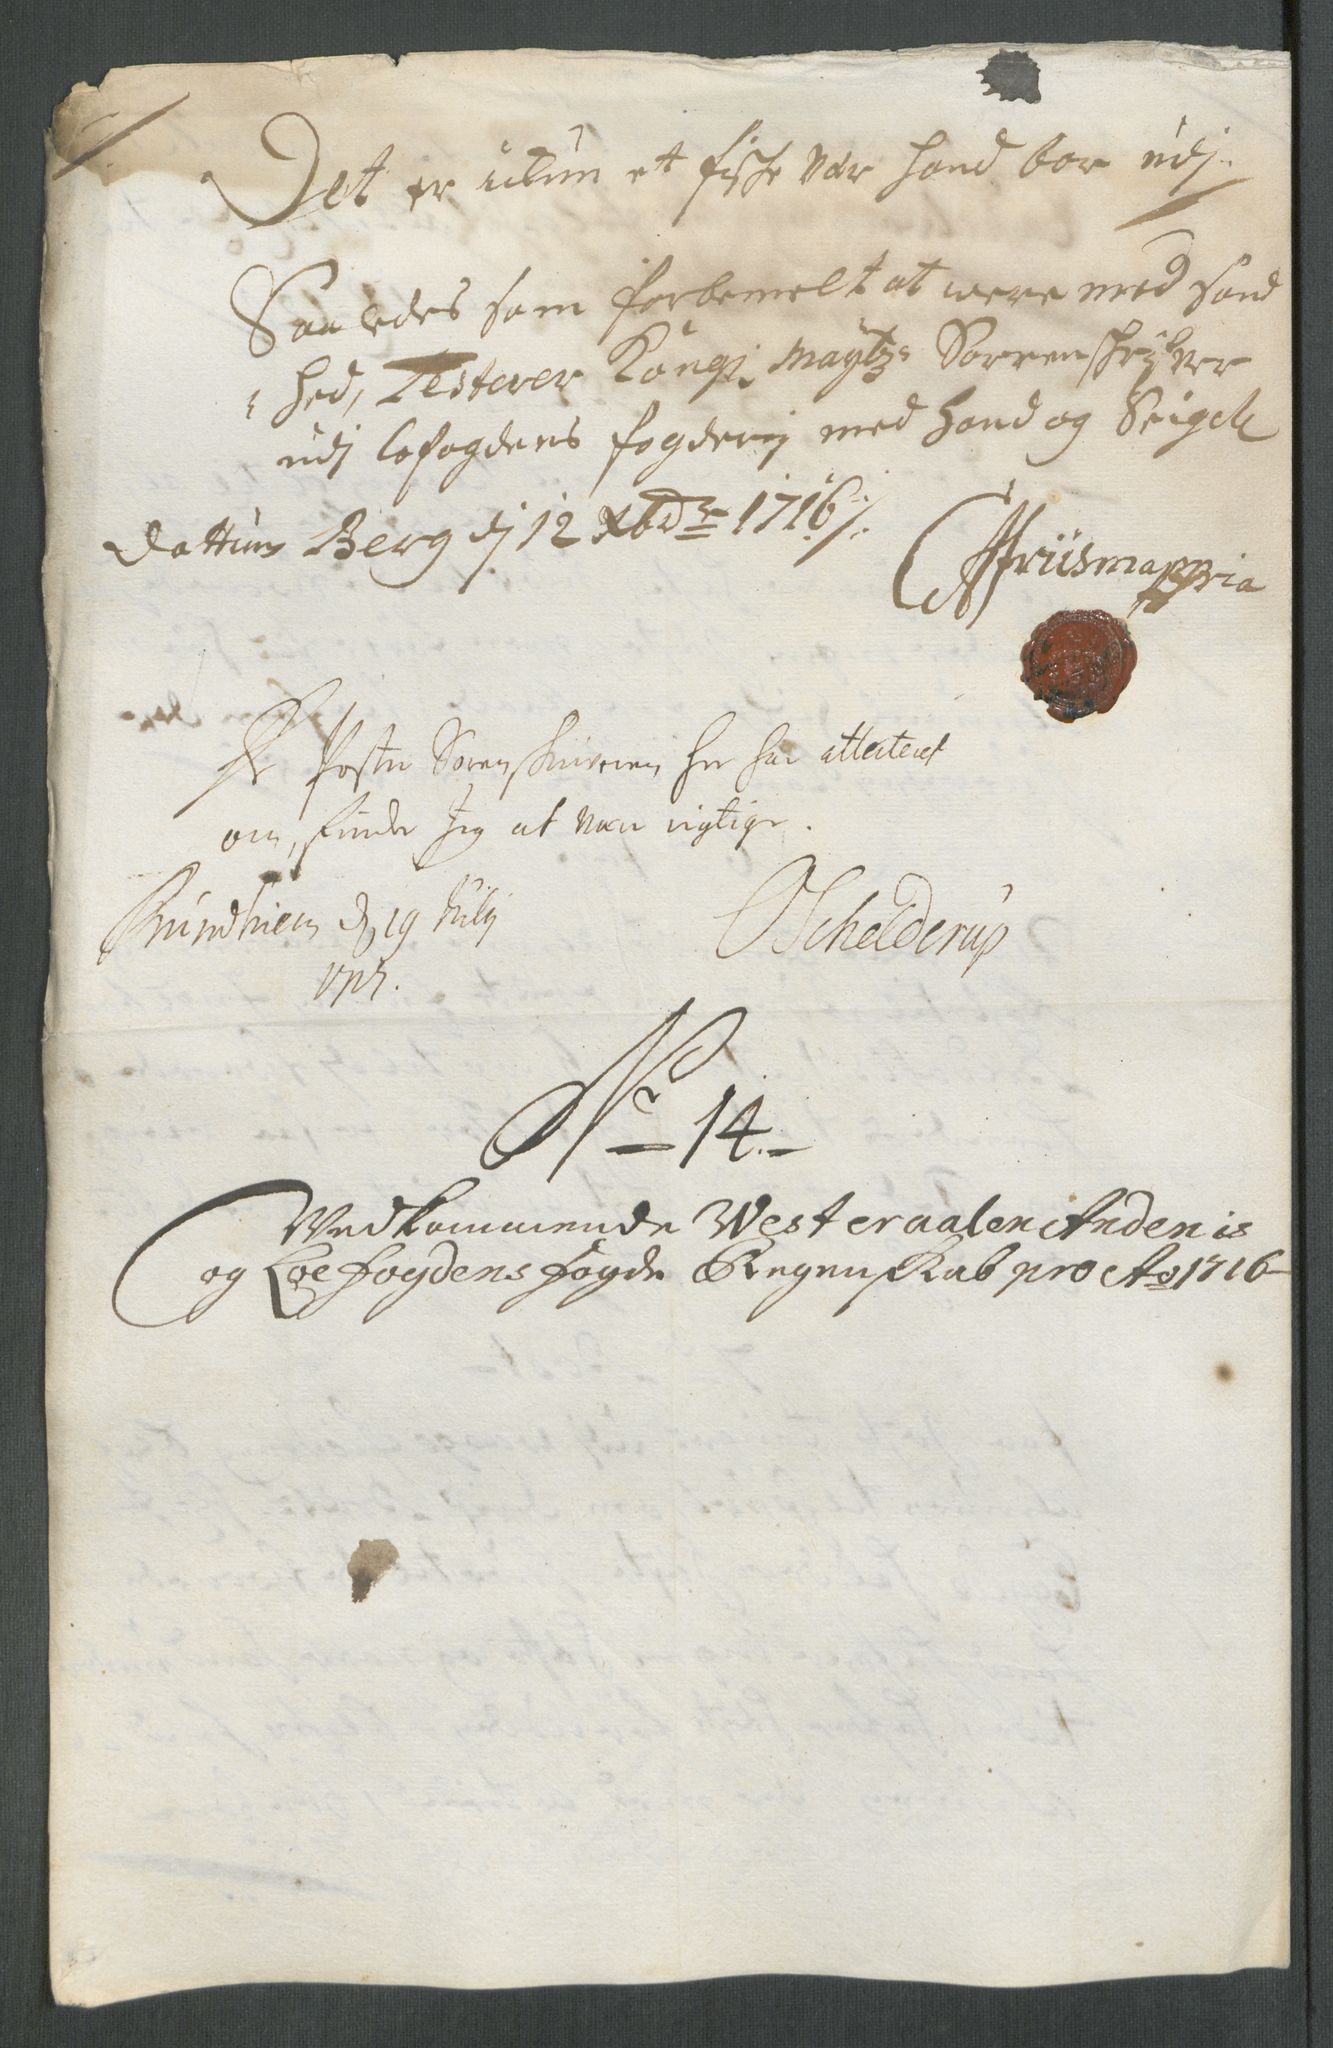 Det er ickun et fiske Vær hand boer udj.
Saaledes som forbemelt at were med sand
hed, Testerer Kongl. Maytz. Sorrenschrifver
udj Lofogdens fogderj med Haand og Seigel
Dattum Berg dj 12 Xbdr 1716 /.
mpria
De Poster Sorenskriveren her har atteteret
om, finder Jeg at være rigtige.
d 19 Julij
OSchelderup
No 14.
Vedkommende Westeraalen Andenis
og Loefogdens fogde Regenskab pro Ao 1716